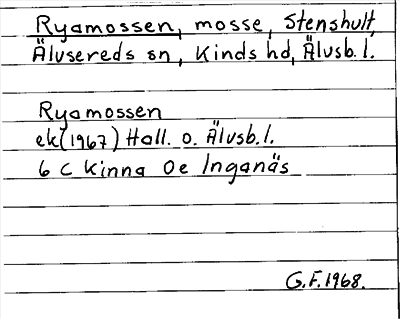 Ryamossen, mosse, Stenshult,
Älvsereds sn, Kinds hd, Älvsb. l.
Ryamossen
ek (1967) Hall. o. Älvsb. l.
6 C Kinna 0e Inganäs
G.F. 1968.